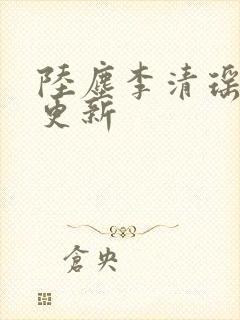 陸塵李清瑶
更新
倉央